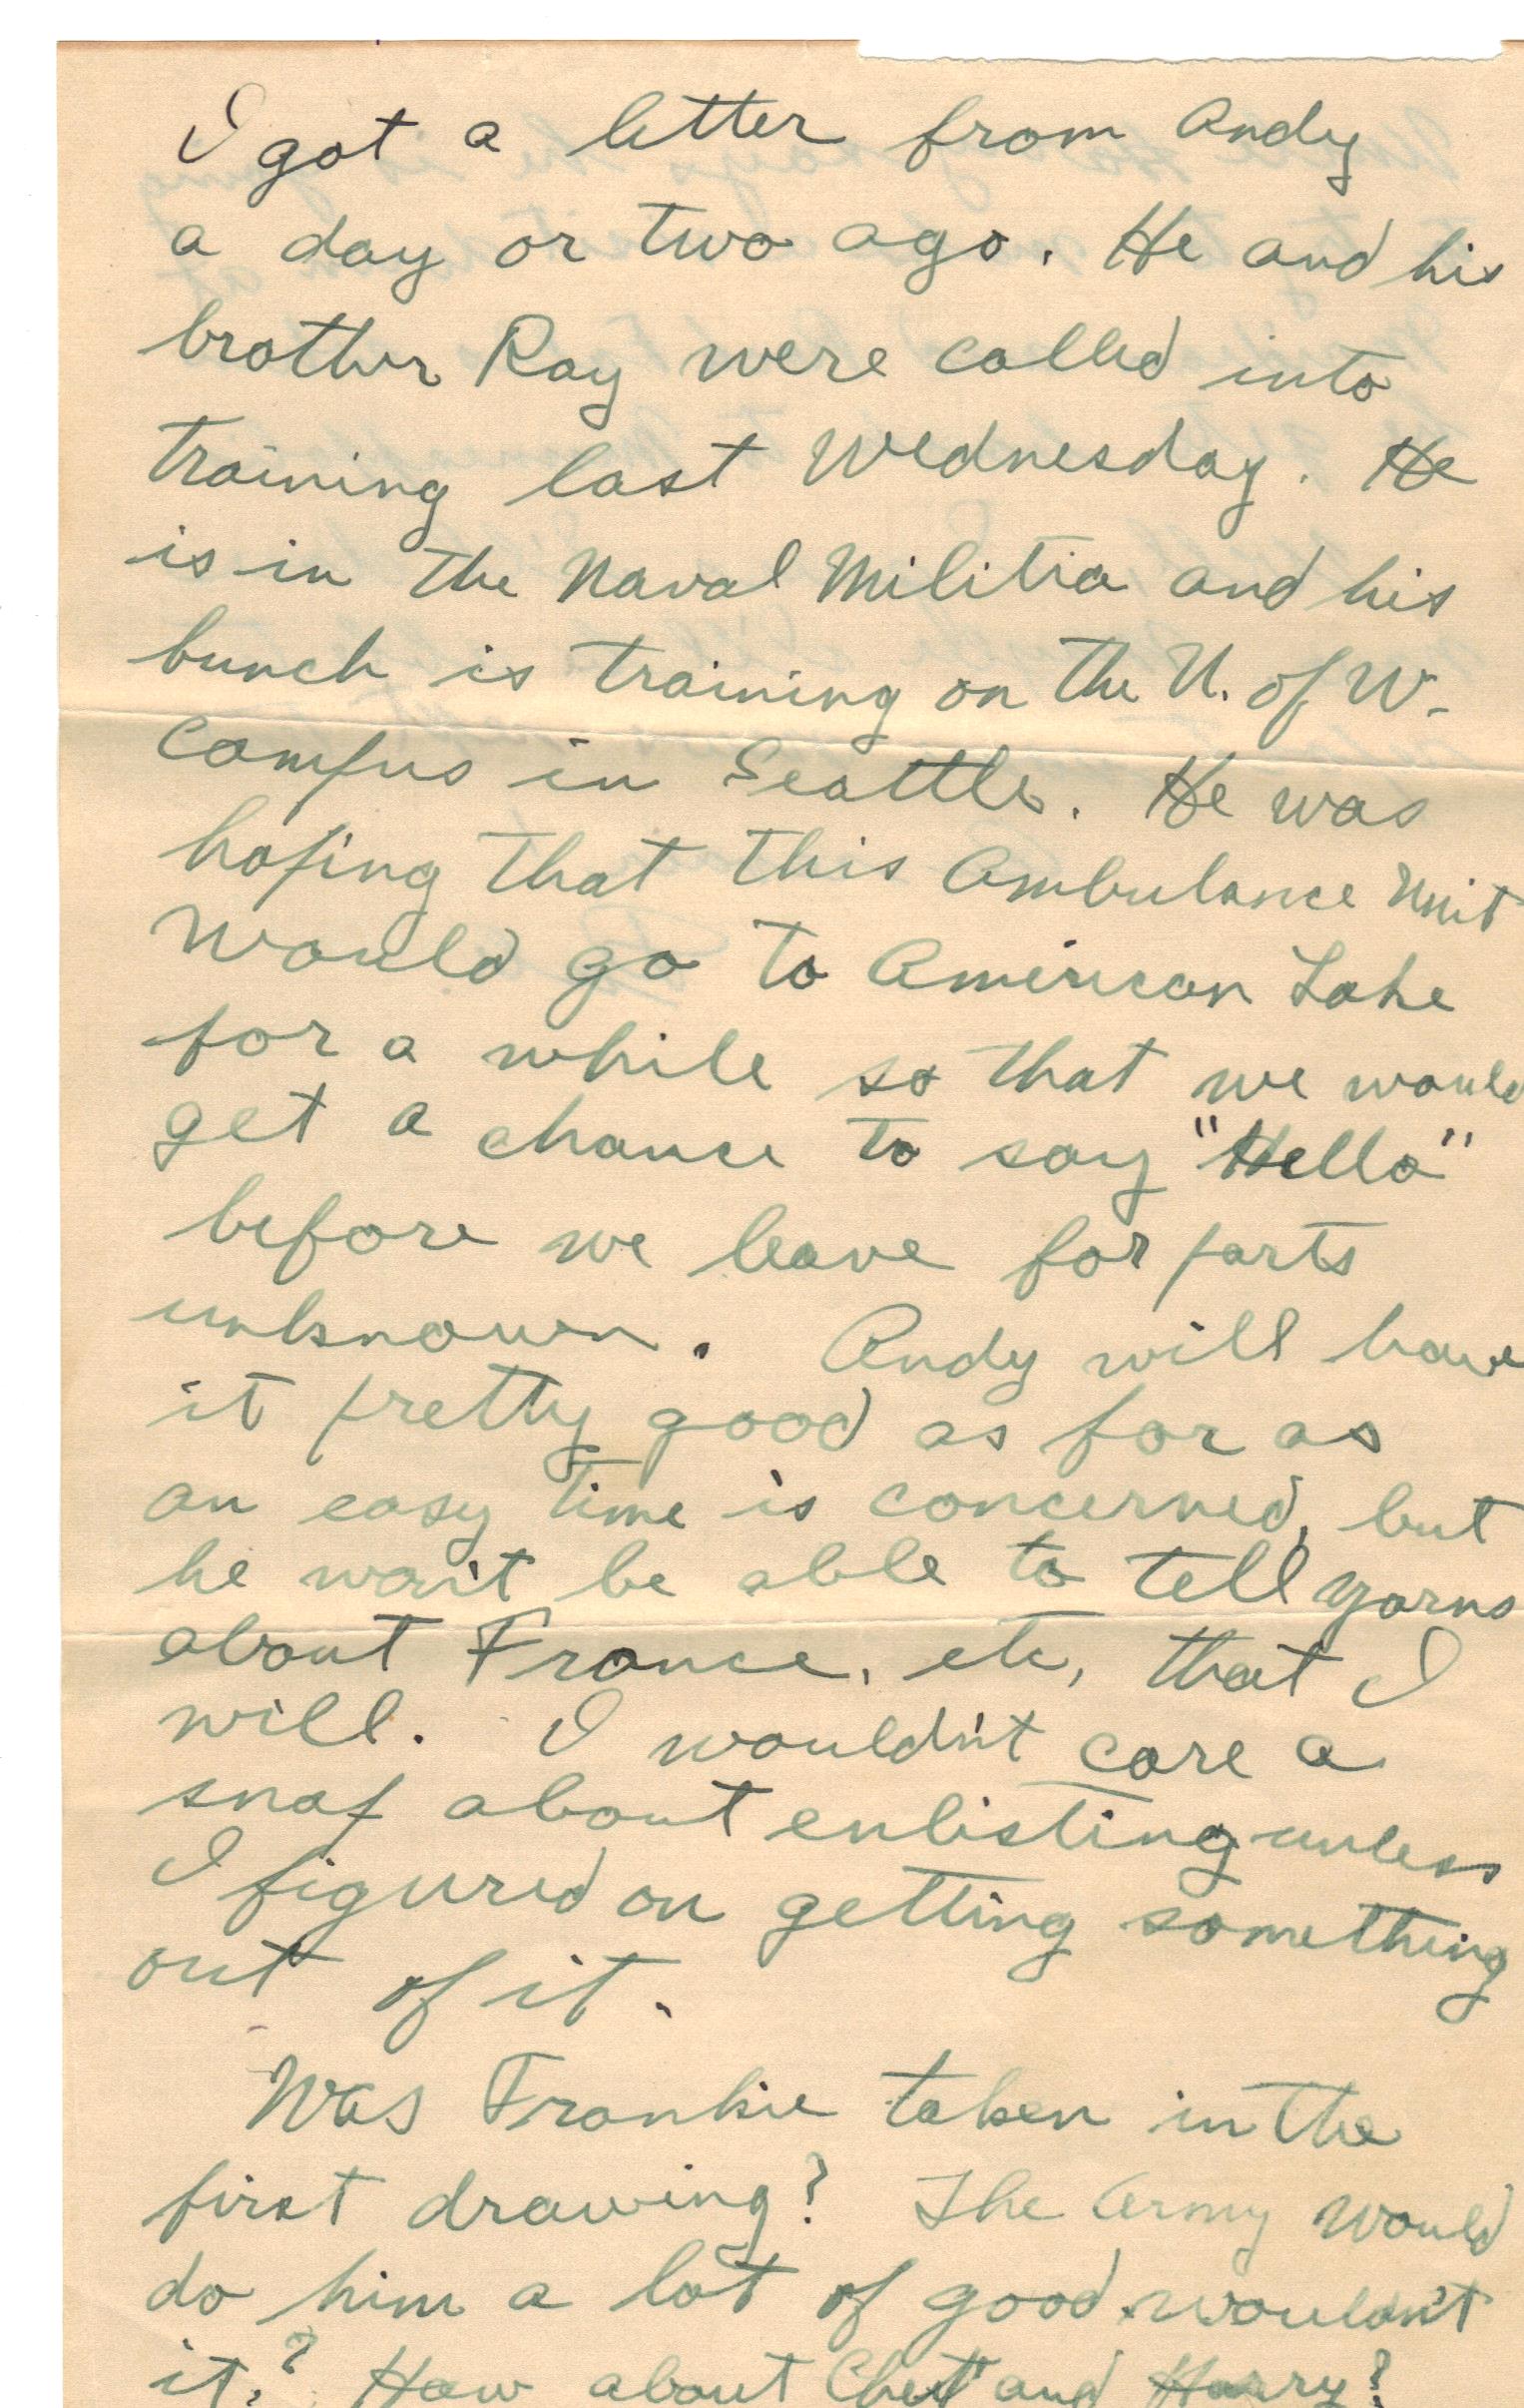 I got a letter from Andy
a day or two ago. He and his
brother Ray were called into
training last Wednesday. He
is in the Naval Militia and his
bunch is training on the U. of W.
campus in Seattle. He was
hoping that this Ambulance Unit
would go to American Lake
for a while so that we would
get a chance to say "Hello"
before we leave for parts
unknown. Andy will have
it pretty good as far as
an easy time is concerned, but
he won't be able to tell yarns
about France, etc, that I
will. I wouldn't care a
snap about enlisting unless
I figured on getting something
out of it.
Was Frankie taken in the
first drawing? The Army would
do him a lot of good wouldn't
it? How about Chet and Harry?